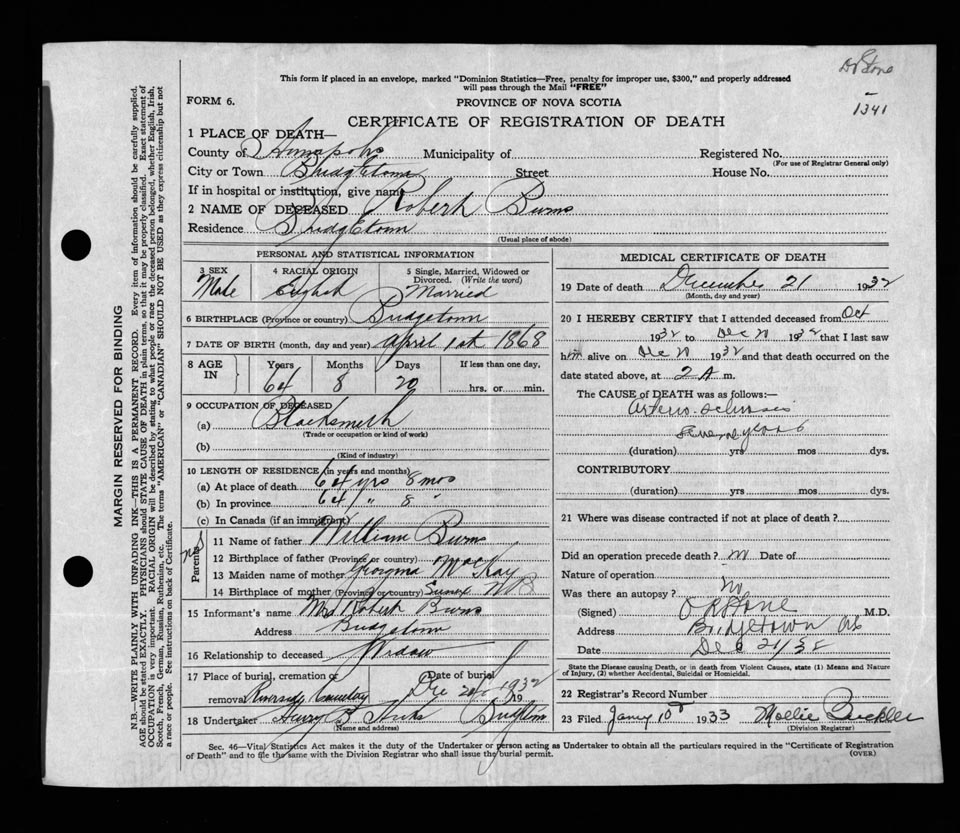 Dr Stone
1341
This form if placed in an envelope, marked "Dominion Statistics—Free, penalty for improper use, $300," and properly addressed
will pass through the Mail "FREE"
FORM 6.
PROVINCE OF NOVA SCOTIA
CERTIFICATE OF REGISTRATION OF DEATH
1 PLACE OF DEATH—
County of Annapolis Municipality of Registered No.
(For use of Registrar General only)
City or Town Bridgetown Street House No.
If in hospital or institution, give name
2 NAME OF DECEASED Robert Burns
Residence Bridgetown
(Usual place of abode)
PERSONAL AND STATISTICAL INFORMATION
3 SEX 4 RACIAL ORIGIN 5 Single, Married, Widowed or Divorced. (Write the word)
Male English Married
6 BIRTHPLACE (Province or country) Bridgetown
7 DATE OF BIRTH (month, day and year) April 1st 1868
8 AGE IN Years Months Days If less than one day,
64 8 20 hrs. or min.
9 OCCUPATION OF DECEASED
(a) Blacksmith
(Trade or occupation or kind of work)
(b)
(Kind of industry)
10 LENGTH OF RESIDENCE (in years and months)
(a) At place of death 64 yrs 8 mos
(b) In province 64 " 8 "
(c) In Canada (if an immigrant)
Parents
11 Name of father William Burns
12 Birthplace of father (Province or country)
13 Maiden name of mother Georgina MacKay
14 Birthplace of mother (Province or country) Sussex N B
15 Informant's name Mrs Robert Burns
Address Bridgetown
16 Relationship to deceased Widow
17 Place of burial, cremation or Date of burial
removal Riverside Cemetery Dec 1932 19
18 Undertaker
(Name and address)
MEDICAL CERTIFICATE OF DEATH
19 Date of death December 21 1932
(Month, day and year)
20 I HEREBY CERTIFY that I attended deceased from Oct
1932 to Dec 1932 that I last saw
him alive on Dec 1932 and that death occurred on the
date stated above, at 2 A m.
The CAUSE of DEATH was as follows:—
Arterio-sclerosis
Several years
(duration) yrs mos dys.
CONTRIBUTORY
(duration) yrs mos dys.
21 Where was disease contracted if not at place of death?
Did an operation precede death? Date of
Nature of operation
Was there an autopsy? No
(Signed) M.D.
Address Bridgetown NS
Date Dec 21/32
State the Disease causing Death, or in death from Violent Causes, state (1) Means and Nature
of Injury, (2) whether Accidental, Suicidal or Homicidal.
22 Registrar's Record Number
23 Filed Jany 10th 1933 Mollie Buckler
(Division Registrar)
Sec. 46—Vital Statistics Act makes it the duty of the Undertaker or person acting as Undertaker to obtain all the particulars required in the "Certificate of Registration
of Death" and to file the same with the Division Registrar who shall issue the burial permit. (OVER)
MARGIN RESERVED FOR BINDING
N.B.—WRITE PLAINLY WITH UNFADING INK—THIS IS A PERMANENT RECORD. Every item of information should be carefully supplied.
AGE should be stated EXACTLY. PHYSICIANS should STATE CAUSE OF DEATH in plain terms, so that it may be properly classified. Exact statement of
OCCUPATION is very important. RACIAL ORIGIN will be described by stating to what people or race the deceased person belonged, whether English, Irish,
Scotch, French, German, Russian, Ruthenian, etc. The terms "AMERICAN" or "CANADIAN" SHOULD NOT BE USED as they express citizenship but not
a race or people. See instructions on back of Certificate.